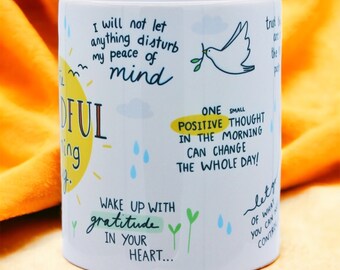 I will not let
anything disturb
my peace of
mind
ONE small
POSITIVE THOUGHT
IN THE MORNING
CAN CHANGE
THE WHOLE DAY!
WAKE UP WITH
gratitude
IN YOUR
HEART...
let go
OF WHAT
YOU CAN
CONTRO